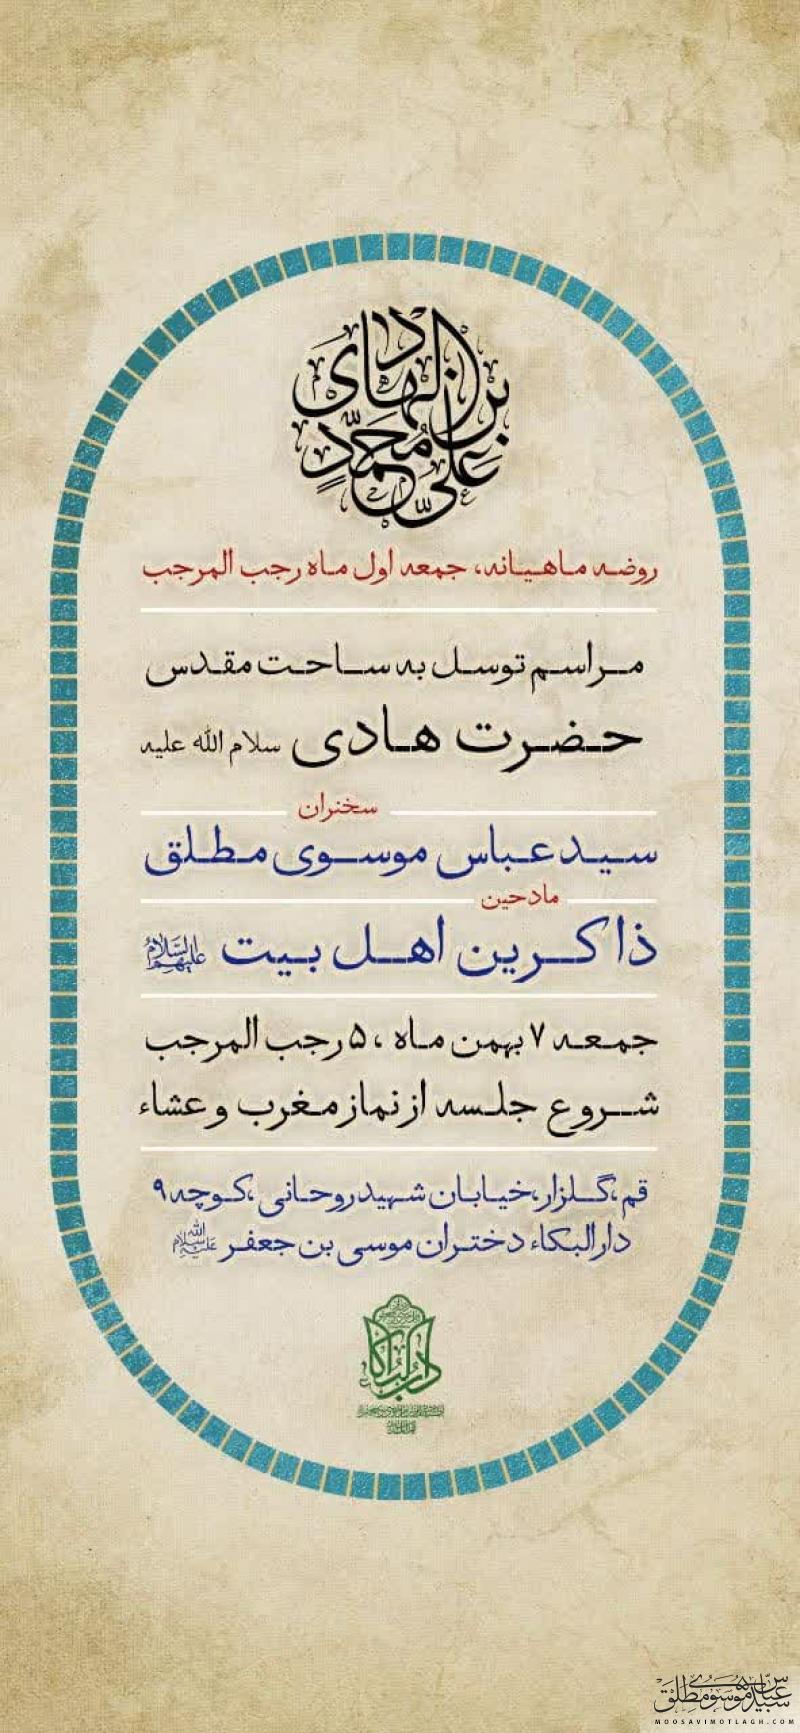 علی بن محمد الهادی
روضه ماهیانه، جمعه اول ماه رجب المرجب
مراسم توسل به ساحت مقدس
حضرت هادی سلام الله علیه
سخنران
سید عباس موسوی مطلق
مادحین
ذاکرین اهل بیت علیهم السلام
جمعه ۷ بهمن ماه ، ۵ رجب المرجب
شروع جلسه از نماز مغرب و عشاء
قم،گلزار،خیابان شهید روحانی ،کوچه ۹
دارالبکاء دختران موسی بن جعفر سلام الله علیه
دارالبکاء
سید عباس موسوی مطلق
MOOSAVIMOTLAGH.COM